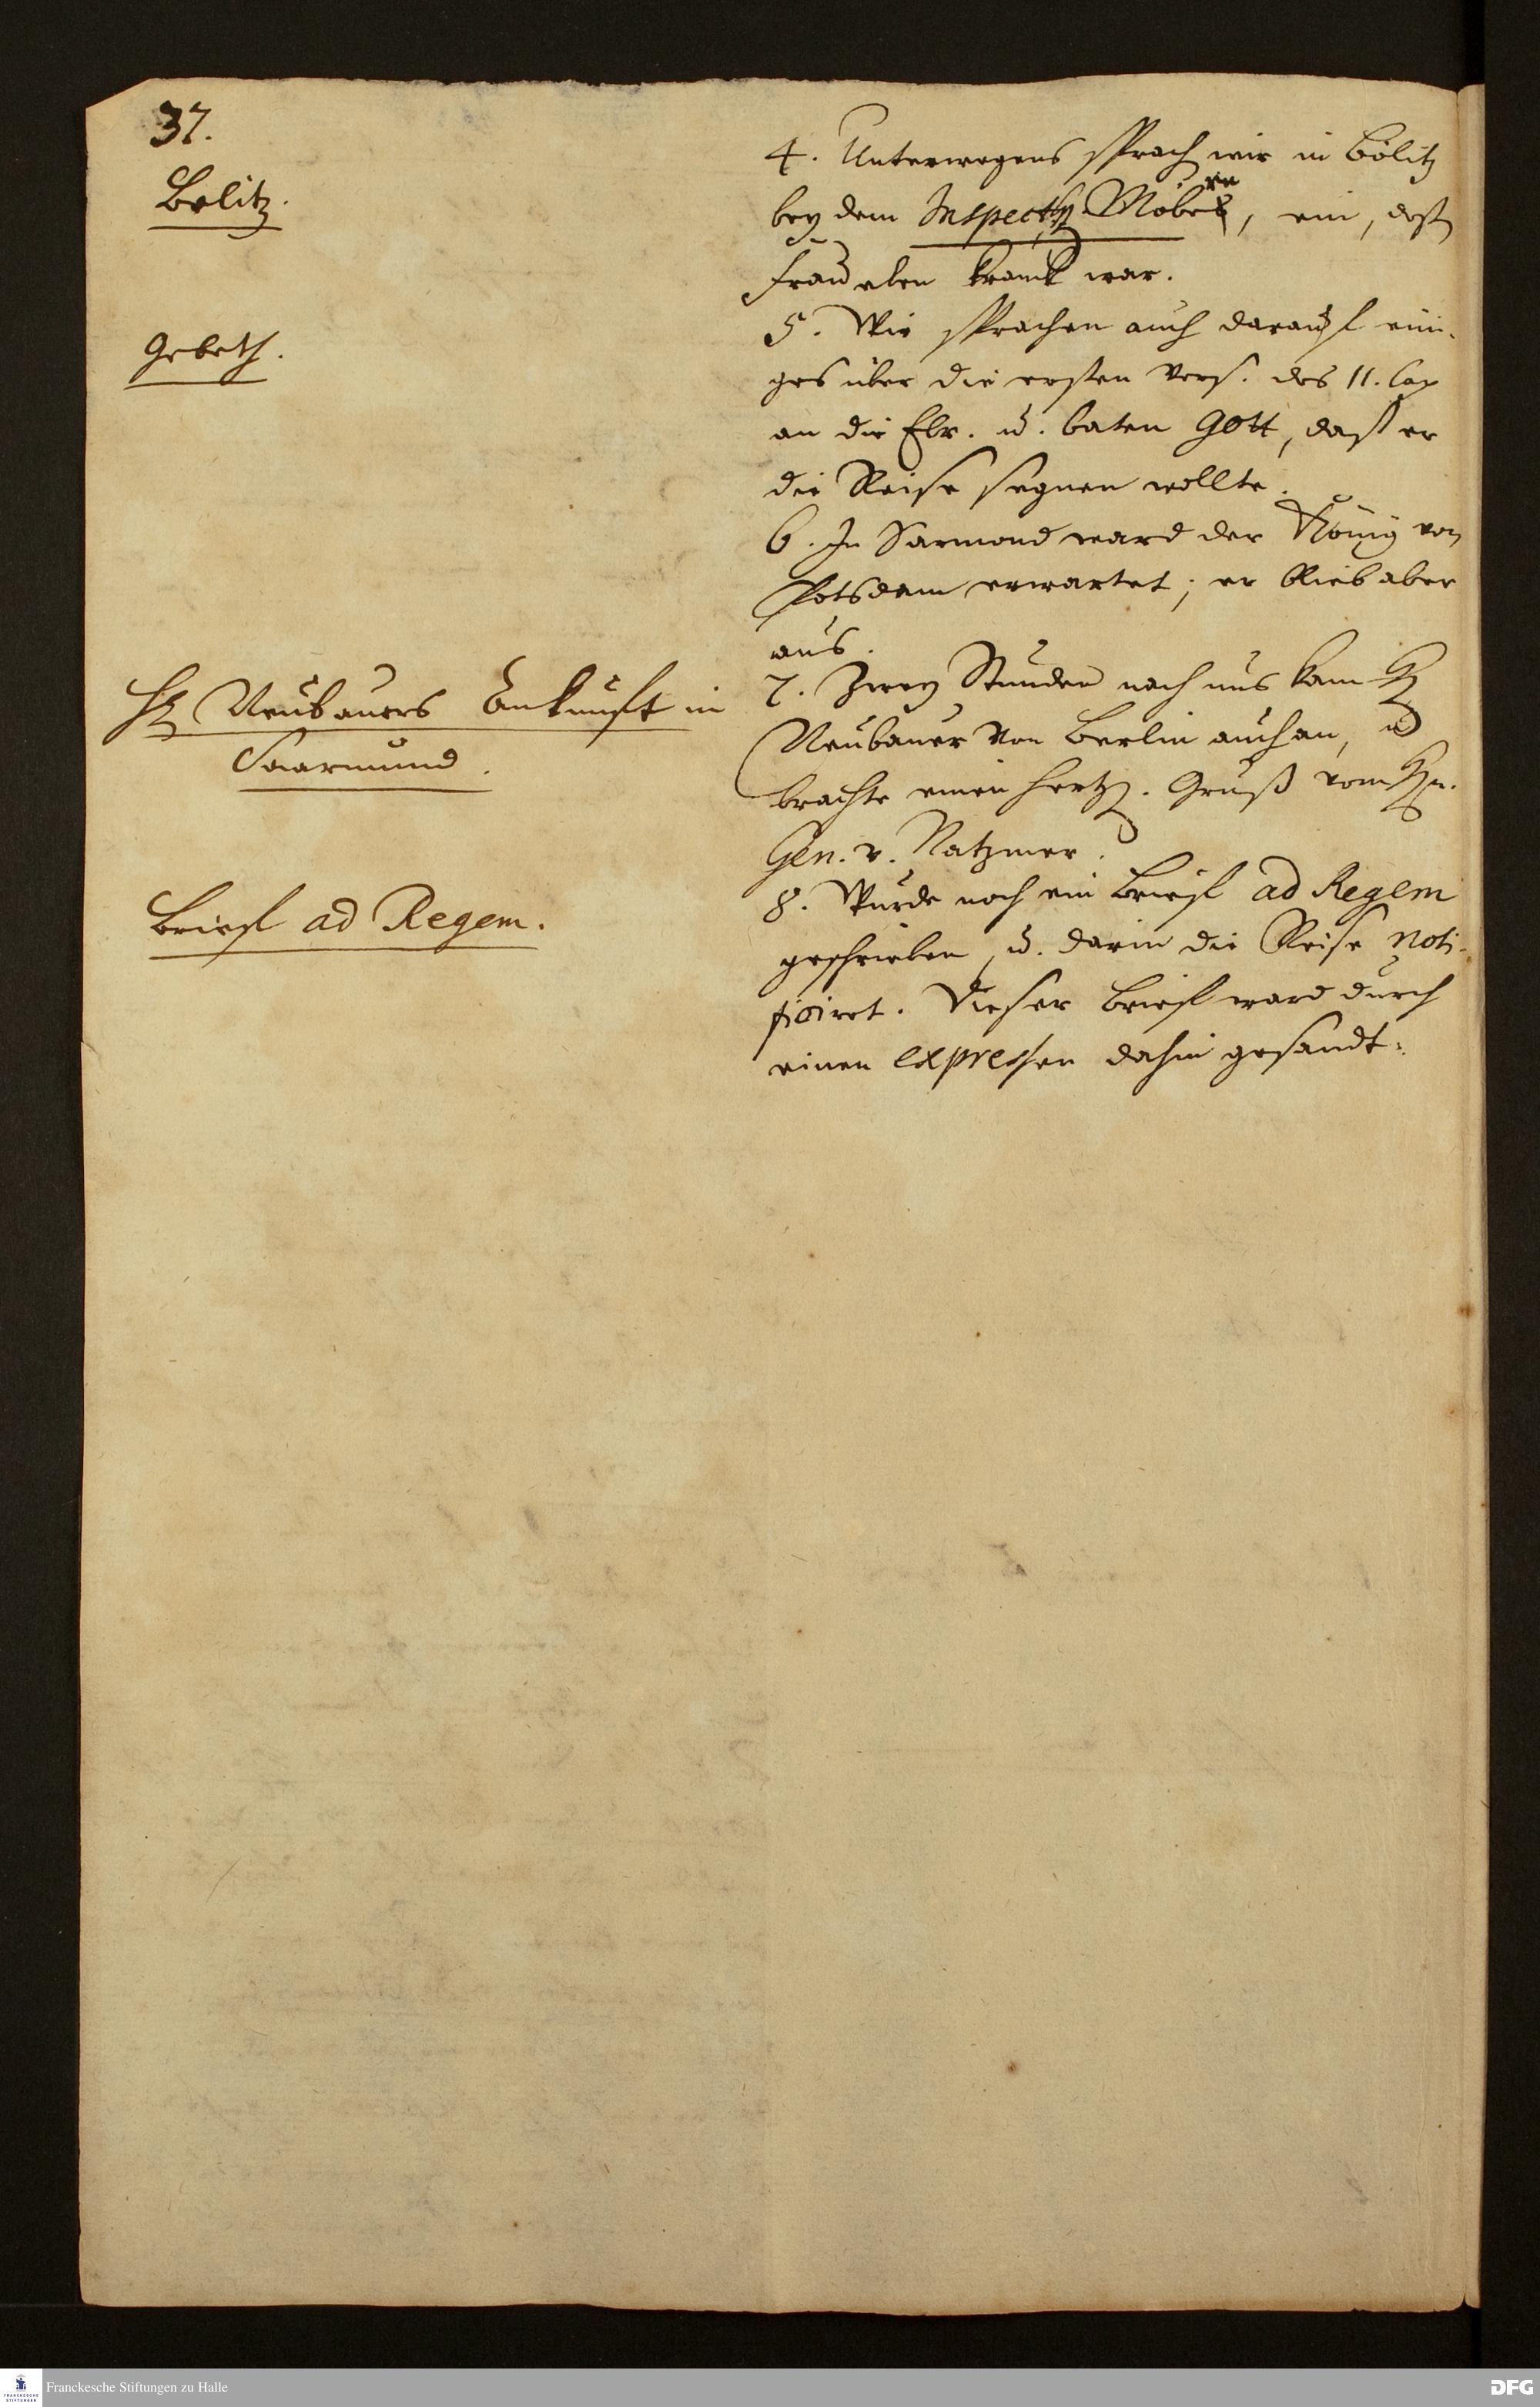 37.
Belitz.
4. Unterwegens sprach wir in Bölitz
bey dem Inspect. Möbes, ein, deß
Frau eben kranck war.
Gebeth.
5. Wir sprachen auch darauf eini-
ges über die ersten Vers. des 11. Cap
an die Ebr. u. baten Gott, daß er
die Reise segnen wollte.
6. In Sarmond ward der König von
Potsdam erwartet; er blieb aber
aus.
H. Neubauers Ankunft in
Saarmund.
7. Zwey Stunden nach uns kam H
Neubauer von Berlin auch an, u
brachte einen hertzl. Gruß vom Hn.
Gen. v. Natzmer.
Brief ad Regem.
8. Wurde noch ein Brief ad Regem
geschrieben, u. darin die Reise noti-
ficiret. Dieser Brief ward durch
einen expressen dahin gesandt.
Franckesche Stiftungen zu Halle
FRANCKESCHE
STIFTUNGEN
DFG